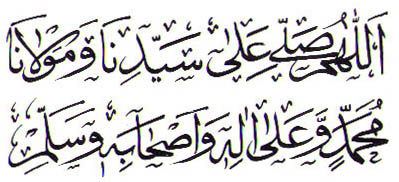 اَللّٰهُمَّ صَلِّ عَلٰى سَيِّدِنَا وَمَوْلَانَا
مُحَمَّدٍ وَّعَلٰى اٰلِهٖ وَاَصْحَابِهٖ وَسَلِّمْ